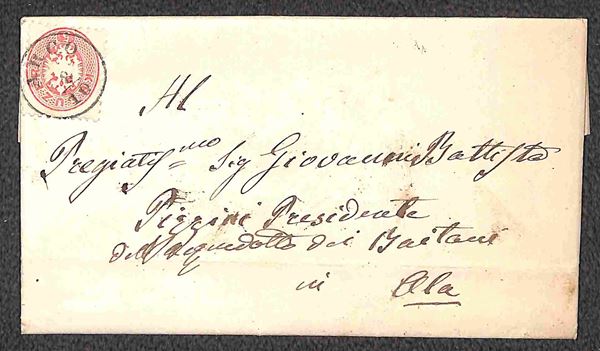 Al
Pregiatiss.mo Sig Giovanni Battista
Pizzini Presidente
dell'acquedotto dei
in Ala